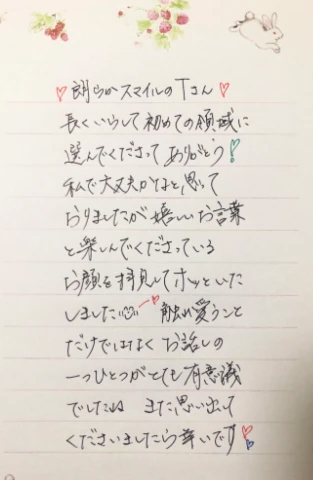 ♡朗らかスマイルのTさん♡
長くいらして初めての領域に
選んでくださってありがとう!
私で大丈夫かなと思って
おりましたが嬉しいお言葉
と楽しんでくださっている
お顔を拝見してホッといた
しました 触れ愛うこと
だけではなく お話しの
一つひとつがとても有意義
でしたね また思い出して
くださいましたら幸いです!